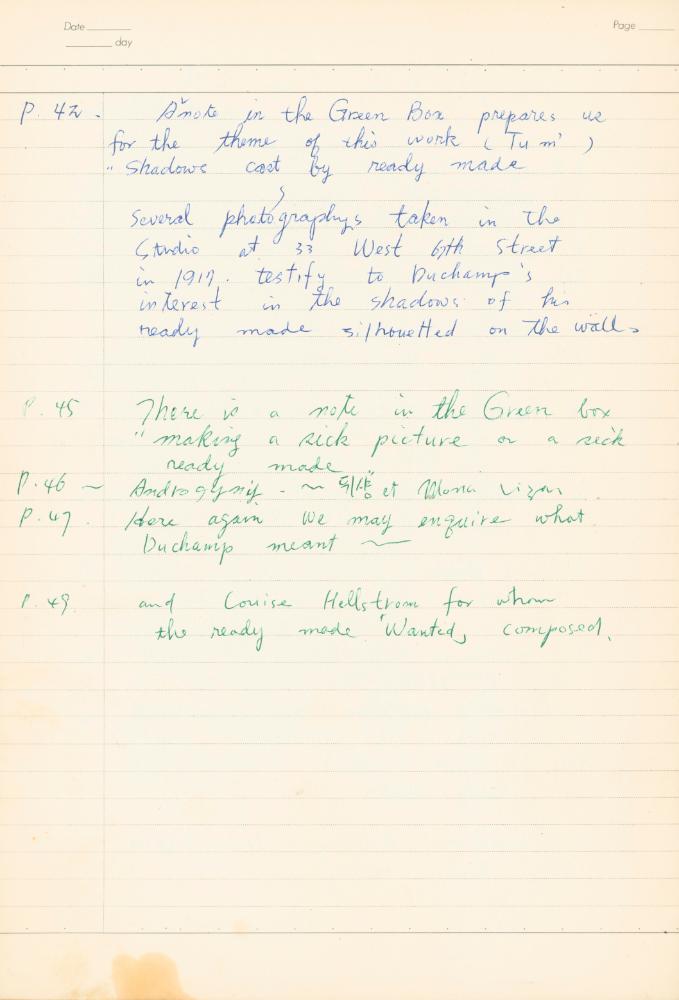 Date
Page
day
P. 42. A note in the Green Box prepares us
for the theme of this work (Tu m')
"Shadows cast by ready made
Several photographys taken in the
Studio at 33 West 67th Street
in 1917. testify to Duchamp's
interest in the shadows of his
ready made silhouetted on the wall.
P. 45 There is a note in the Green box
"making a sick picture or a sick
ready made
P. 46 ~ Androgyny. ~ et Mona Lizas
P. 47. Here again we may enquire what
Duchamp meant ~
P. 49 and Louise Hellstrom for whom
the ready made 'Wanted, composed.